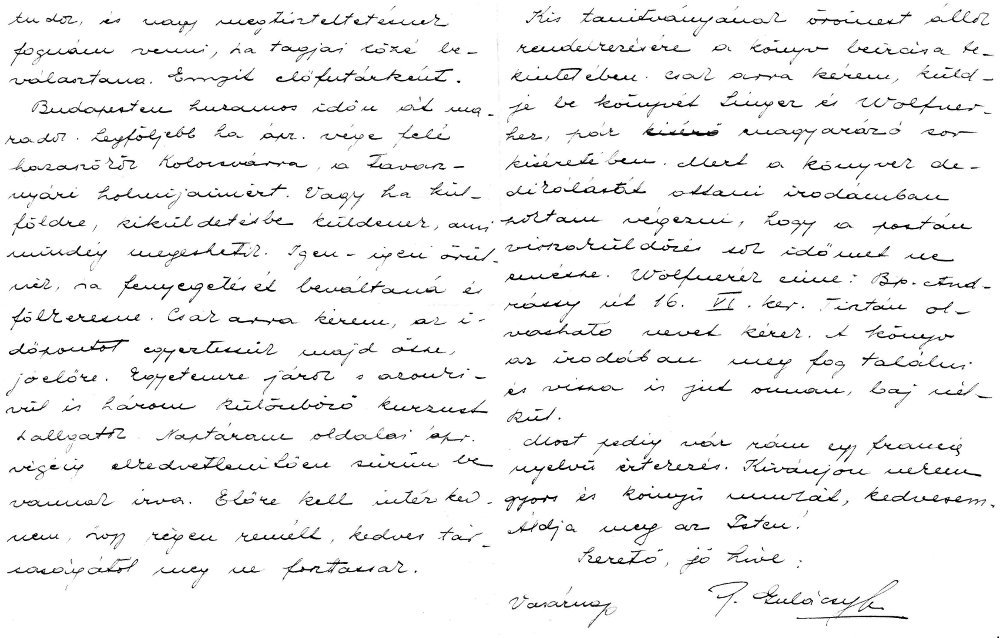 tudok, és nagy megtiszteltetésnek
fognám venni, ha tagjai közé be-
választana. Ennyit előfutárként.
Budapesten huzamos időn át ma-
radok. Legföljebb ha ápr. vége felé
hazaszököm Kolozsvárra, a tavasz-
nyári holmijaimért. Vagy ha kül-
földre, kiküldetésbe küldenek, ami
mindég megeshetik. Igen-igen örül-
nék, ha fenyegetését beváltaná és
fölkeresne. Csak arra kérem, az i-
dőpontot egyeztessük majd össze,
jóelőre. Egyetemre járok s azonki-
vül is három különböző kurzust
hallgatok. Naptáram oldalai ápr.
végéig elkedvetlenitően sürün be
vannak irva. Előre kell intézked-
nem, hogy régen remélt, kedves tár-
saságától meg ne fosszassak.
Kis tanitványának örömest állok
rendelkezésére a könyv beirása te-
kintetében. Csak arra kérem, küld-
je be könyvét Singer és Wolfner-
hez, pár magyarázó sor
kiséretében. Mert a könyvek de-
dikálását ottani irodámban
szoktam végezni, hogy a postán
visszaküldözés sok időmet ne
eméssze. Wolfnerék cime: Bp. And-
rássy út 16. VI. ker. Tintán ol-
vasható nevet kérek. A könyv
az irodában meg fog találni
és vissza is jut onnan, baj nél-
kül.
Most pedig vár rám egy francia
nyelvü értekezés. Kivánjon nekem
gyors és könnyü munkát, kedvesem.
Áldja meg az Isten!
Szerető, jó hive:
Vasárnap
P. Gulácsy I.